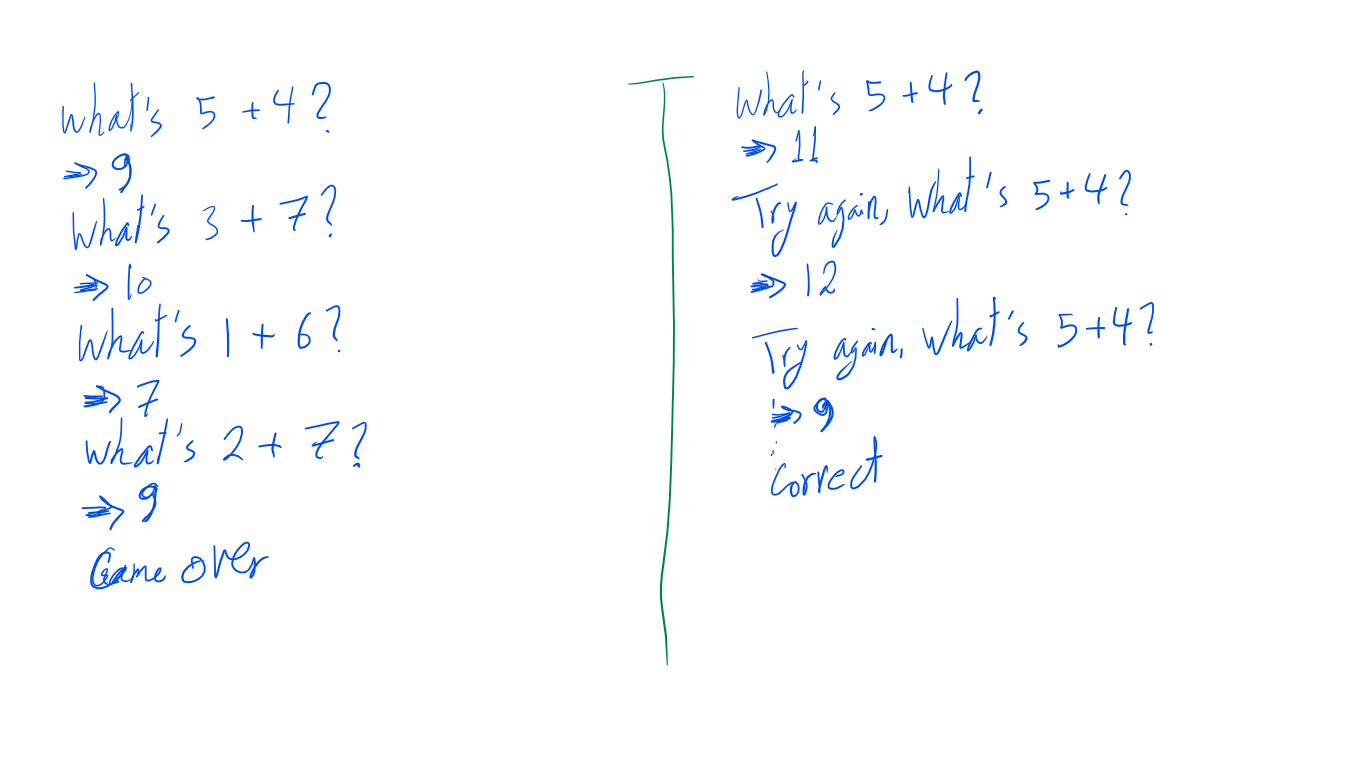 What's 5 + 4?
=> 9
What's 3 + 7?
=> 10
What's 1 + 6?
=> 7
What's 2 + 7?
=> 9
Game over
What's 5 + 4?
=> 11
Try again, What's 5 + 4?
=> 12
Try again, What's 5 + 4?
=> 9
Correct